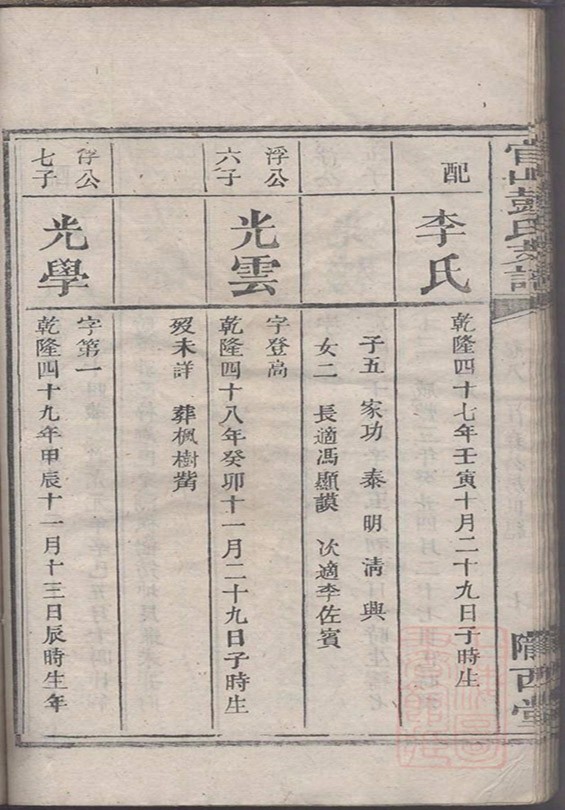 彭氏支譜
隴西堂
配
李氏
乾隆四十七年壬寅十月二十九日子時生
子五 家功 泰 明 淸 興
女二 長適馮顯謨 次適李佐賓
浮公
六子
光雲
字登高
乾隆四十八年癸卯十一月二十九日子時生
歿未詳 葬楓樹觜
浮公
七子
光學
字第一
乾隆四十九年甲辰十一月十三日辰時生年